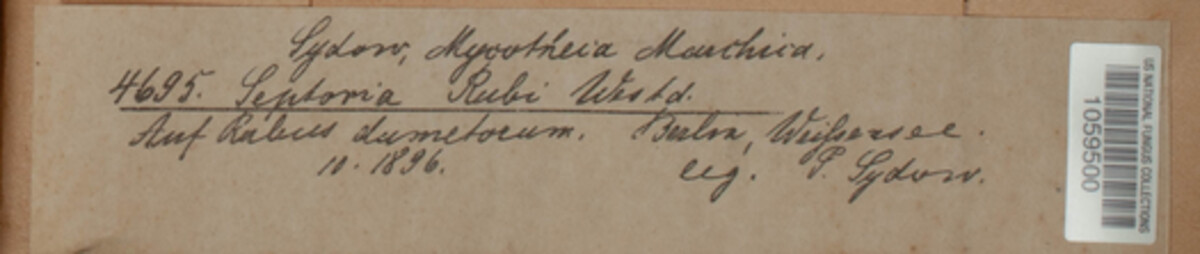 Sydow, Mycotheca Marchica.
4695. Septoria Rubi Westd.
Auf Rubus dumetorum. Berlin, Weißensee.
10. 1896. leg. P. Sydow.
US NATIONAL FUNGUS COLLECTIONS
1059500